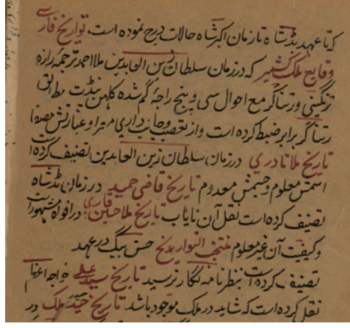 که تا عهد بدشاه تا زمان اکبر شاه حالات درج نموده است تواریخ فارسی
وقایع ملک کشمیر که در زمان سلطان زین العابدین ملا احمد ترجمه رازه
ترنگنی و رتناگر مع احوال سی و پنج راجه گم شده کلهن پندت مطابق
رتناگر برابر ضبط کرده است و از تعصب و جانب داری مبرا و عبارتش
تاریخ ملا نادری در زمان سلطان زین العابدین تصنیف کرده
اسمش معلوم جسمش معدوم تاریخ قاضی حمید در زمان بدشاه
تصنیف کرده است نقل آن نایاب تاریخ ملا حسن قاری در افواه مشهور است
و کیفیت آن غیر معلوم منتخب التواریخ حسن بیگ در عهد
تصنیف کرده است بنظر نامه نگار نرسید تاریخ سید علی
نقل کرده است که شاید در ملک موجود باشد تاریخ حیدر ملک در